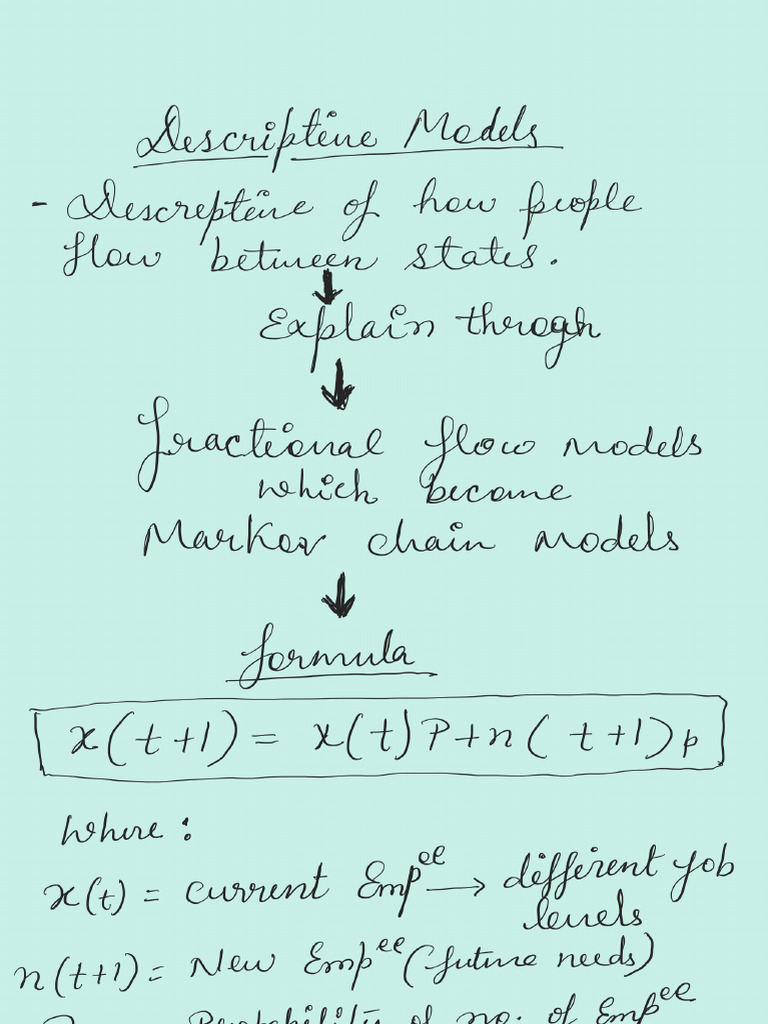 Descriptive Models
- Descreptive of how people
flow between states.
Explain throgh
fractional flow models
which become
Markov chain models
formula
x(t+1) = x(t)P+n(t+1)p
where:
x(t) = current Emp^ee → different job
levels
n(t+1) = New Emp^ee (future needs)
Probability of no. of Emp^ee